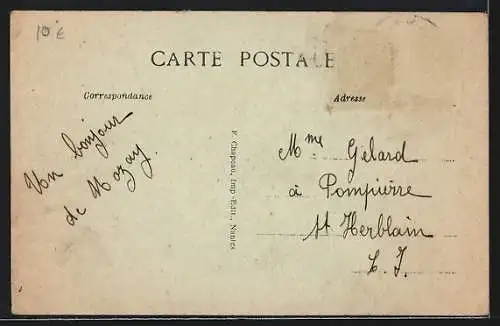 10 €
CARTE POSTALE
Correspondance
Adresse
Un bonjour
de Nazay.
F. Chapeau, Imp.-Edit., Nantes
Mme Gelard
à Pompierre
St Herblain
L. I.